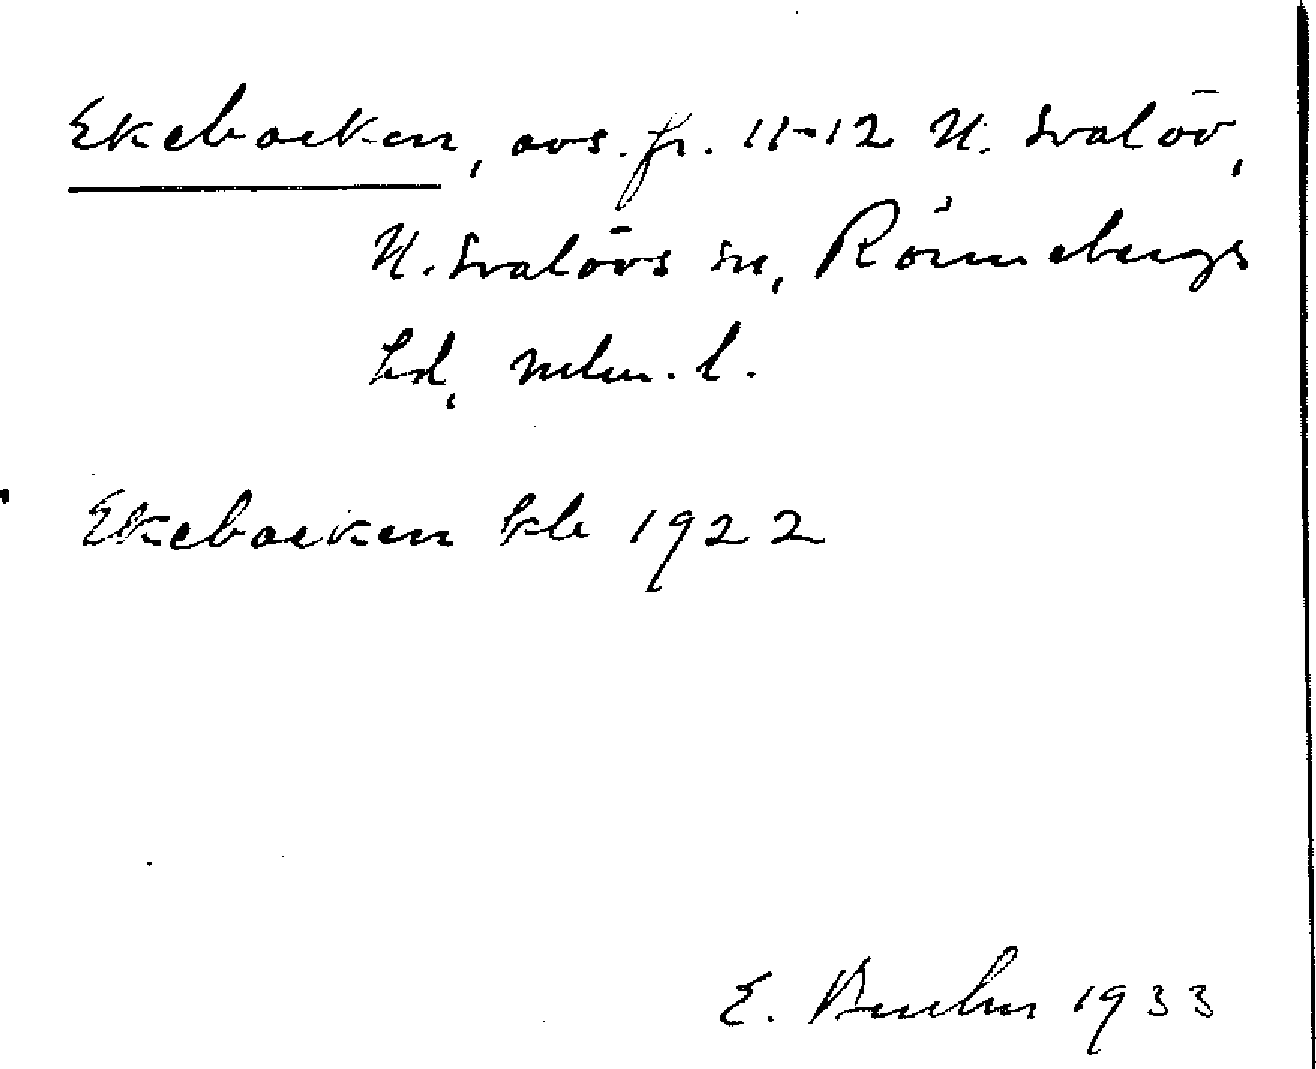 Ekebacken, avs. fr. 11-12 N. Svalöv,
N. Svalövs sn, Rönnebergs
hd, Mlm. l.
Ekebacken kb 1922
E. 1933